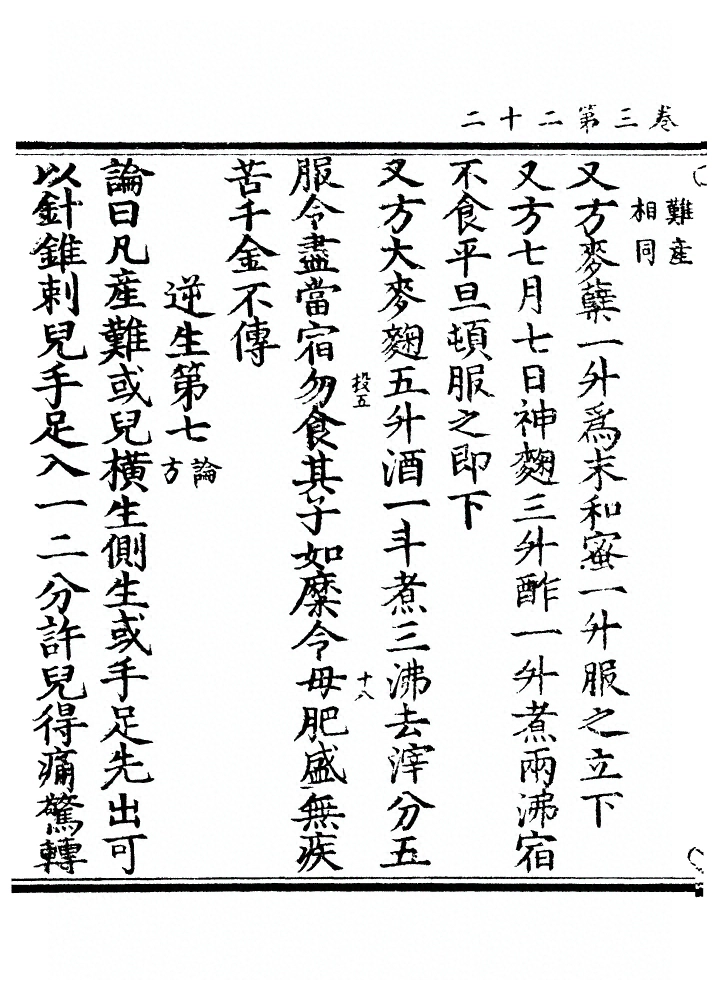 卷三第二十二
難產
相同
又方麥蘗一升爲末和蜜一升服之立下
又方七月七日神麴三升酢一升煮兩沸宿
不食平旦頓服之即下
又方大麥麴五升酒一斗煮三沸去滓分五
服令盡當宿勿食其子如糜令母肥盛無疾
投五
十八
苦千金不傳
逆生第七論方
論曰凡產難或兒橫生側生或手足先出可
以針錐刺兒手足入一二分許兒得痛驚轉